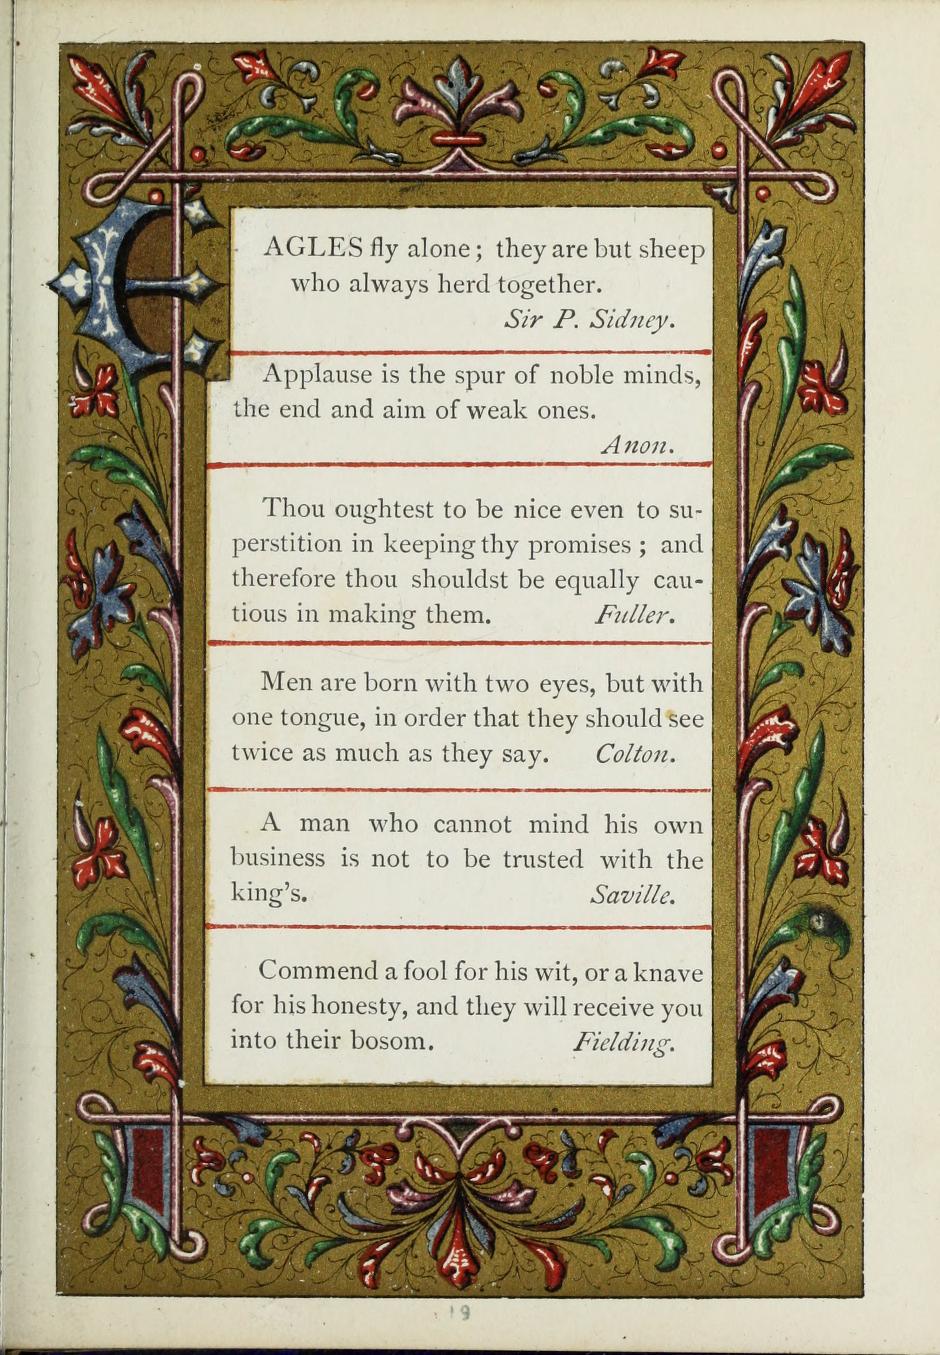 EAGLES fly alone; they are but sheep
who always herd together.
Sir P. Sidney.
Applause is the spur of noble minds,
the end and aim of weak ones.
Anon.
Thou oughtest to be nice even to su-
perstition in keeping thy promises; and
therefore thou shouldst be equally cau-
tious in making them. Fuller.
Men are born with two eyes, but with
one tongue, in order that they should see
twice as much as they say. Colton.
A man who cannot mind his own
business is not to be trusted with the
king's. Saville.
Commend a fool for his wit, or a knave
for his honesty, and they will receive you
into their bosom. Fielding.
19